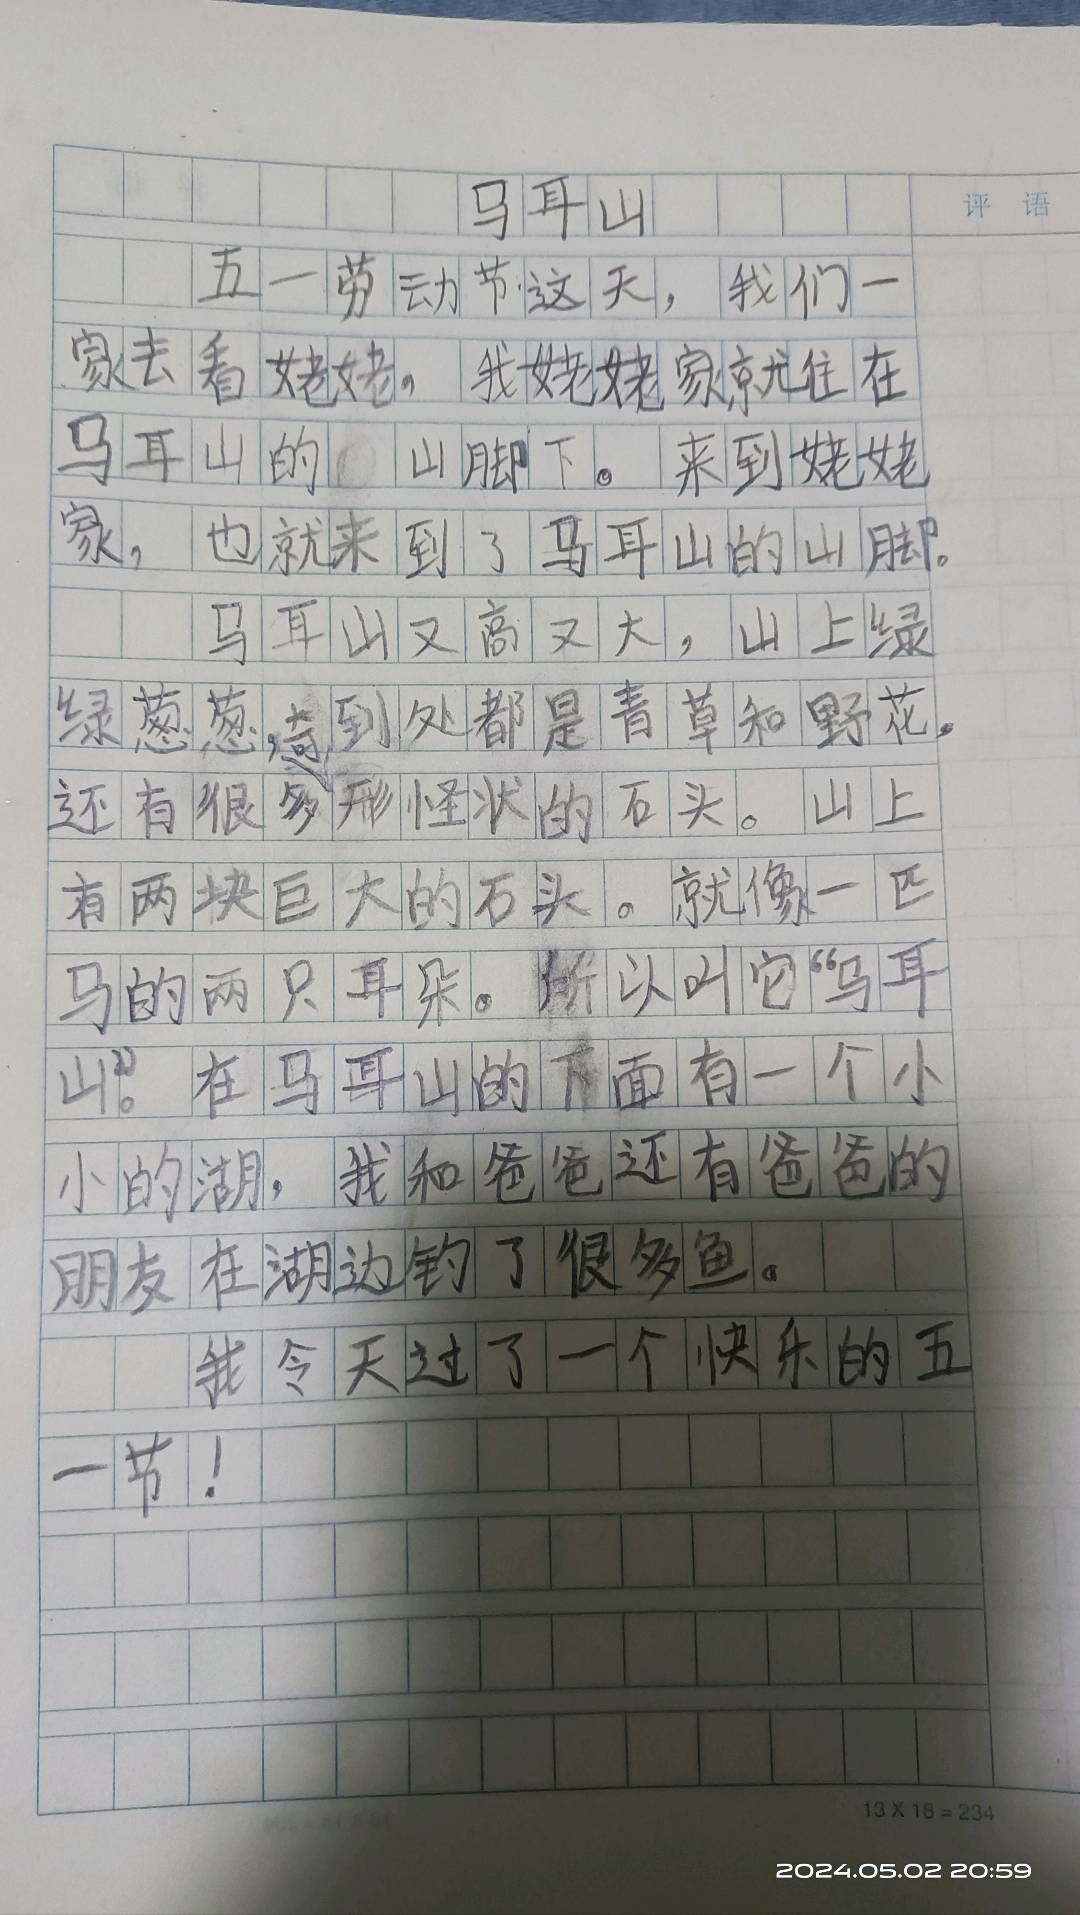 马耳山
评 语
五一劳动节这天，我们一
家去看姥姥。我姥姥家就住在
马耳山的山脚下。来到姥姥
家，也就来到了马耳山的山脚。
马耳山又高又大，山上绿
绿葱葱，到处都是青草和野花。
还有很多奇形怪状的石头。山上
有两块巨大的石头。就像一匹
马的两只耳朵。所以叫它“马耳
山”。在马耳山的下面有一个小
小的湖，我和爸爸还有爸爸的
朋友在湖边钓了很多鱼。
我今天过了一个快乐的五
一节！
13X18=234
2024.05.02 20:59